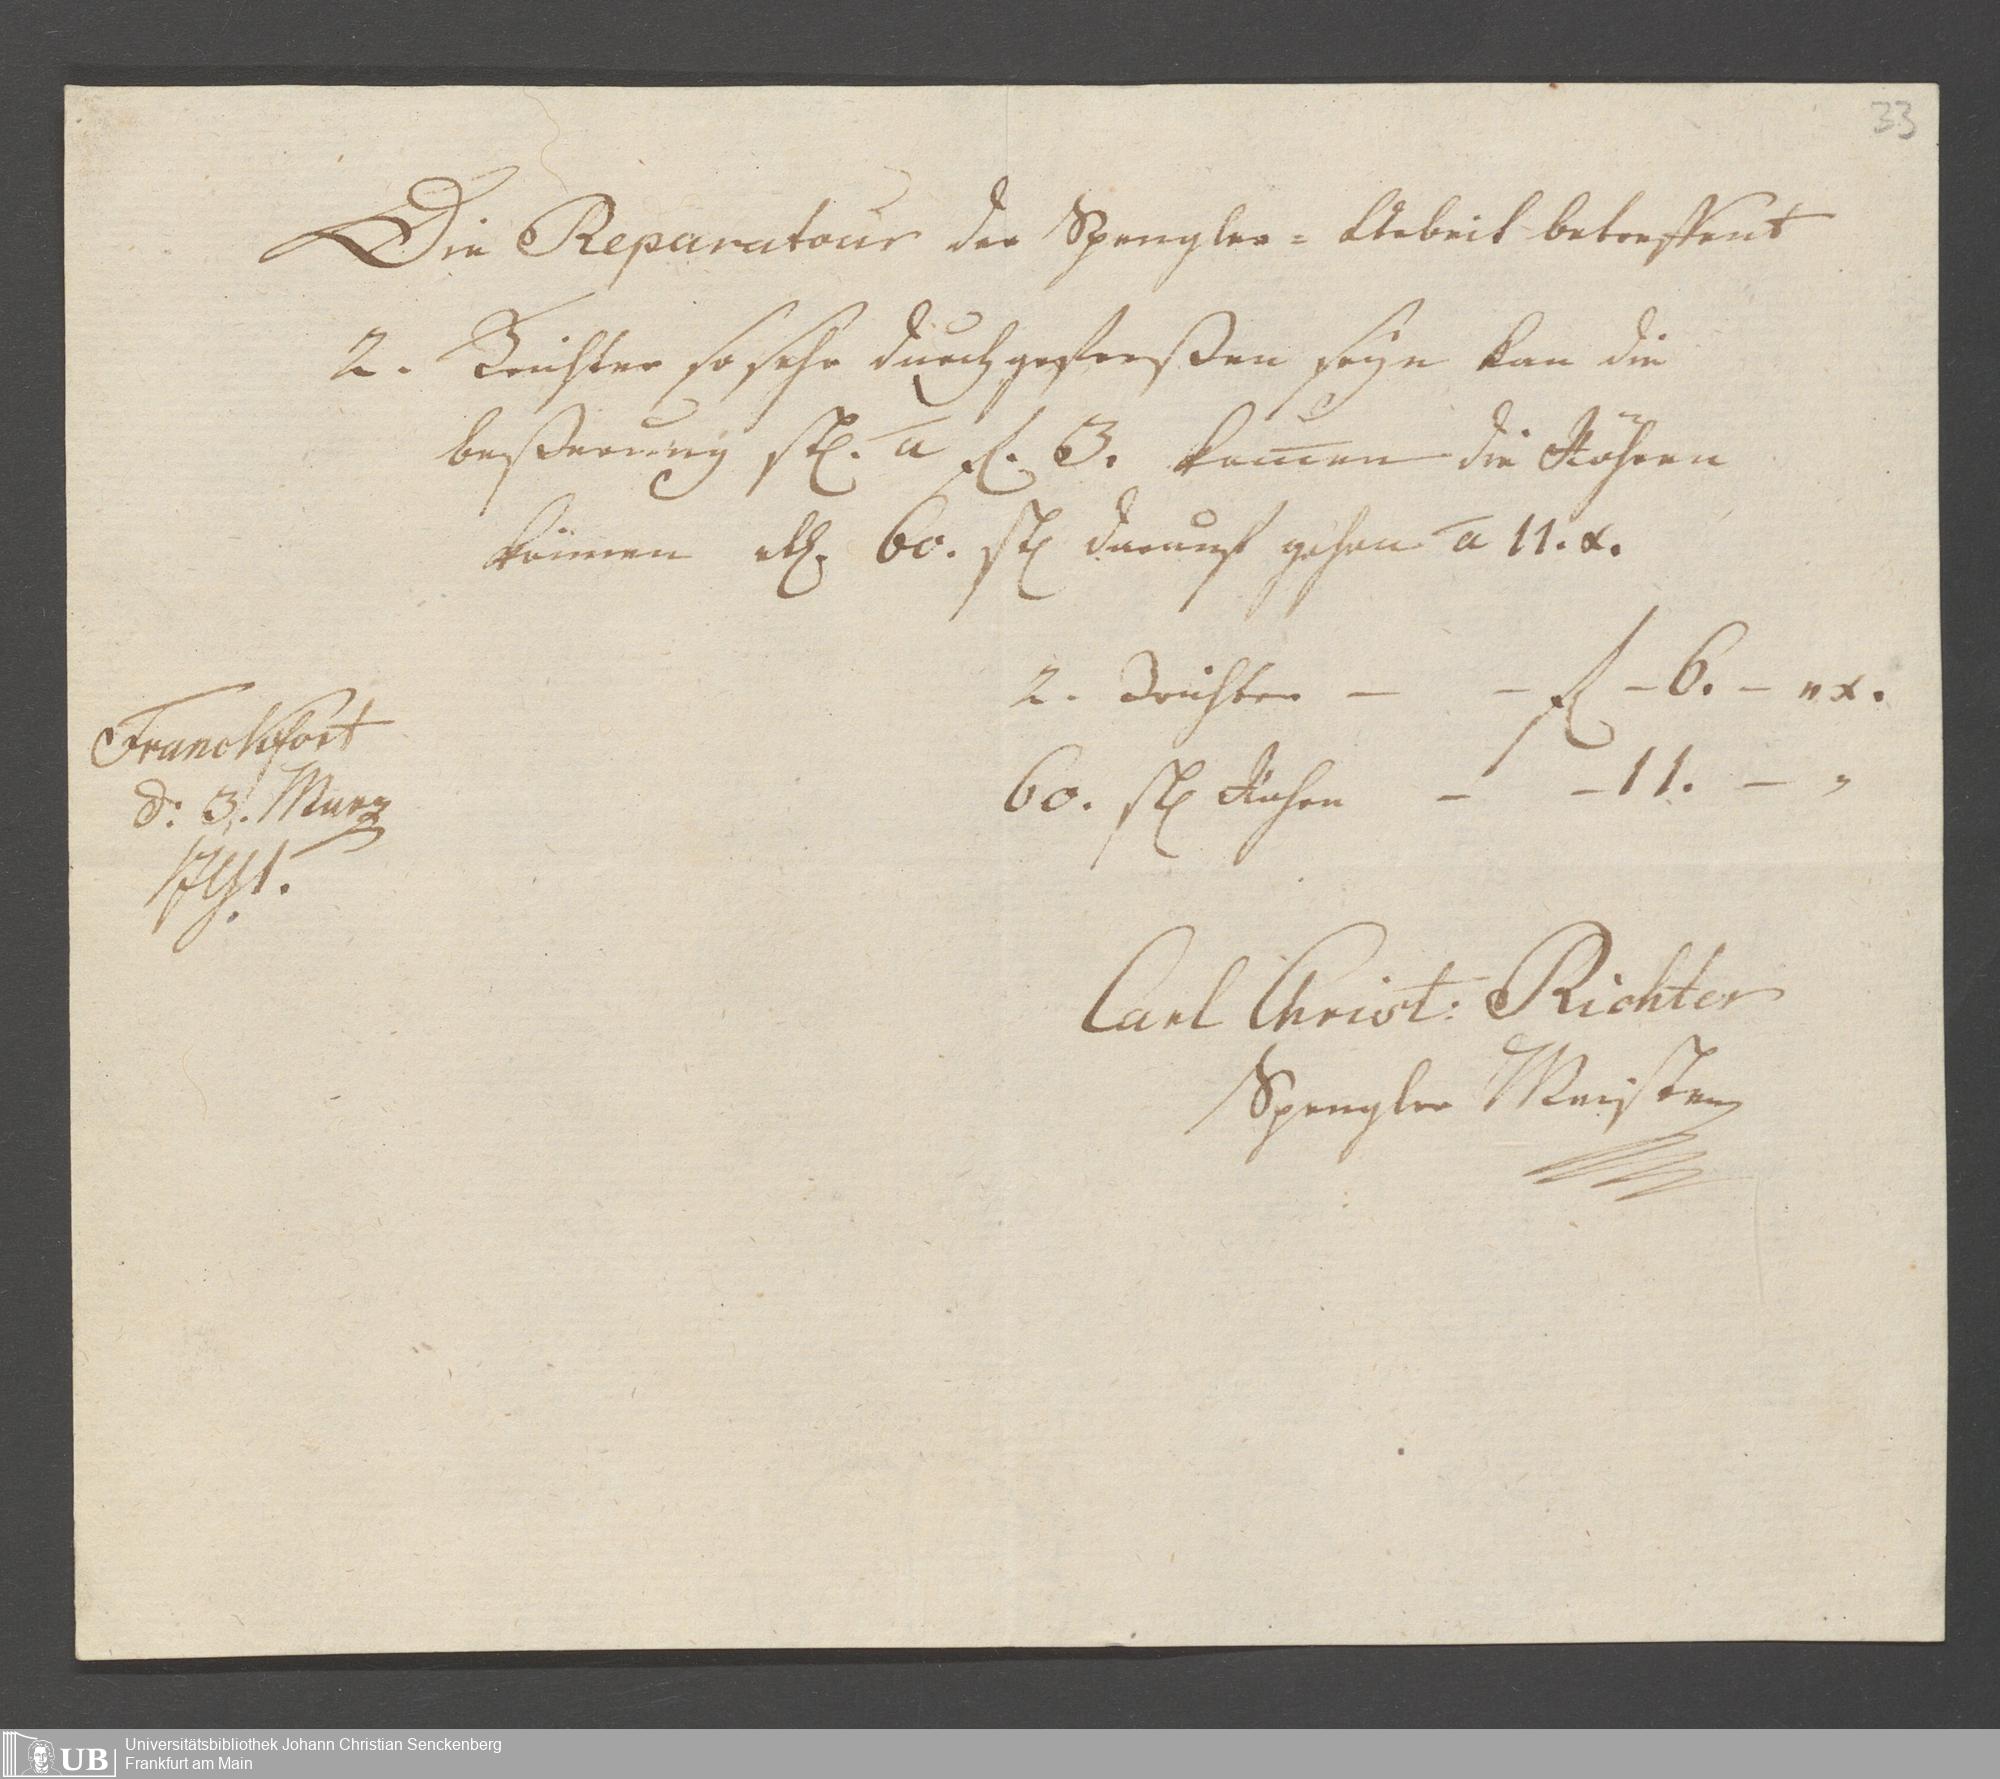 33
Die Reparatour der Spengler = Arbeit betreffent
2. Trichter so sehr durchgefreßen seyn kan die
beßerung st. a f. 3. kom̅en die Röhren
kön̅en etl. 60. st darauf gehen a 11. x.
2. Trichter — — fl — 6. — " x.
60. st Röhren — — 11. — "
Franckfort
d: 3. Marz
1791.
Carl Christ: Richter
Spengler Meister
UB
Universitätsbibliothek Johann Christian Senckenberg
Frankfurt am Main